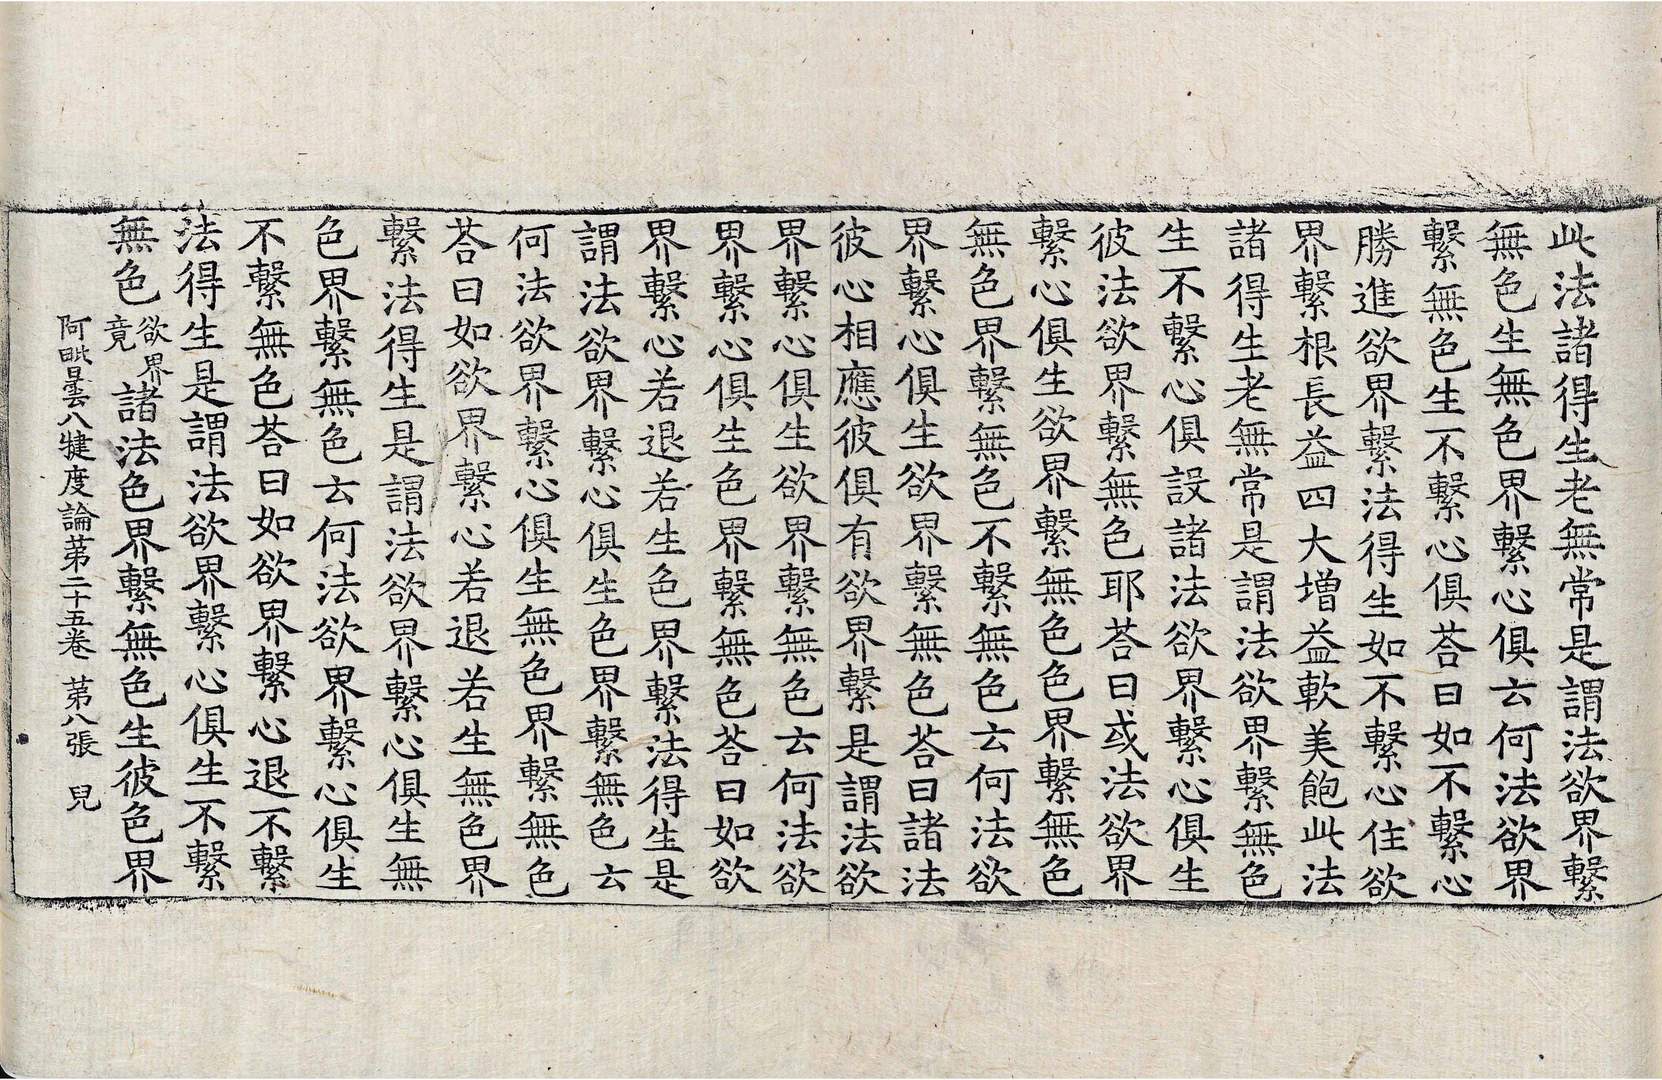 此法諸得生老無常是謂法欲界繫
無色生無色界繫心俱云何法欲界
繫無色生不繫心俱荅曰如不繫心
勝進欲界繫法得生如不繫心住欲
界繫根長益四大增益軟美飽此法
諸得生老無常是謂法欲界繫無色
生不繫心俱設諸法欲界繫心俱生
彼法欲界繫無色耶荅曰或法欲界
繫心俱生欲界繫無色色界繫無色
無色界繫無色不繫無色云何法欲
界繫心俱生欲界繫無色荅曰諸法
彼心相應彼俱有欲界繫是謂法欲
界繫心俱生欲界繫無色云何法欲
界繫心俱生色界繫無色荅曰如欲
界繫心若退若生色界繫法得生是
謂法欲界繫心俱生色界繫無色云
何法欲界繫心俱生無色界繫無色
荅曰如欲界繫心若退若生無色界
繫法得生是謂法欲界繫心俱生無
色界繫無色云何法欲界繫心俱生
不繫無色荅曰如欲界繫心退不繫
法得生是謂法欲界繫心俱生不繫
無色欲界竟諸法色界繫無色生彼色界
阿毗曇八犍度論第二十五卷 第八張 皃